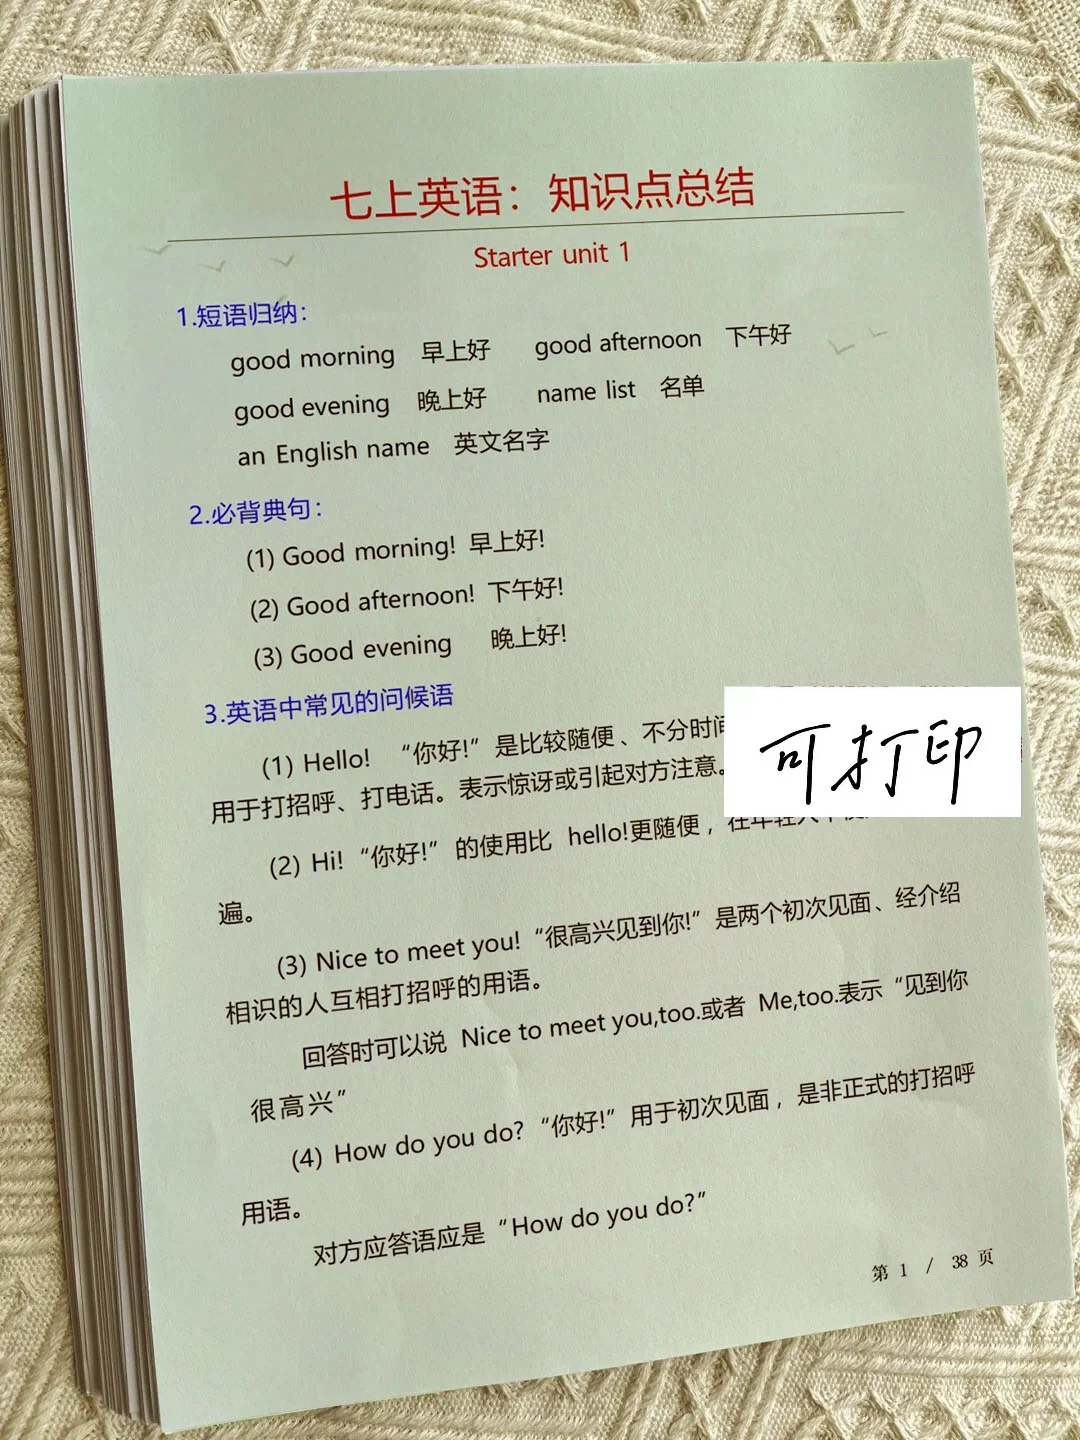 七上英语：知识点总结
Starter unit 1
1.短语归纳：
good morning 早上好 good afternoon 下午好
good evening 晚上好 name list 名单
an English name 英文名字
2.必背典句：
(1) Good morning! 早上好!
(2) Good afternoon! 下午好!
(3) Good evening 晚上好!
3.英语中常见的问候语
(1) Hello! “你好!”是比较随便、不分时间
用于打招呼、打电话。表示惊讶或引起对方注意。
可打印
(2) Hi! “你好!” 的使用比 hello!更随便，在年轻人中
遍。
(3) Nice to meet you! “很高兴见到你!” 是两个初次见面、经介绍
相识的人互相打招呼的用语。
回答时可以说 Nice to meet you,too.或者 Me,too.表示“见到你
很高兴”
(4) How do you do? “你好!” 用于初次见面，是非正式的打招呼
用语。
对方应答语应是“How do you do?”
第 1 / 38 页